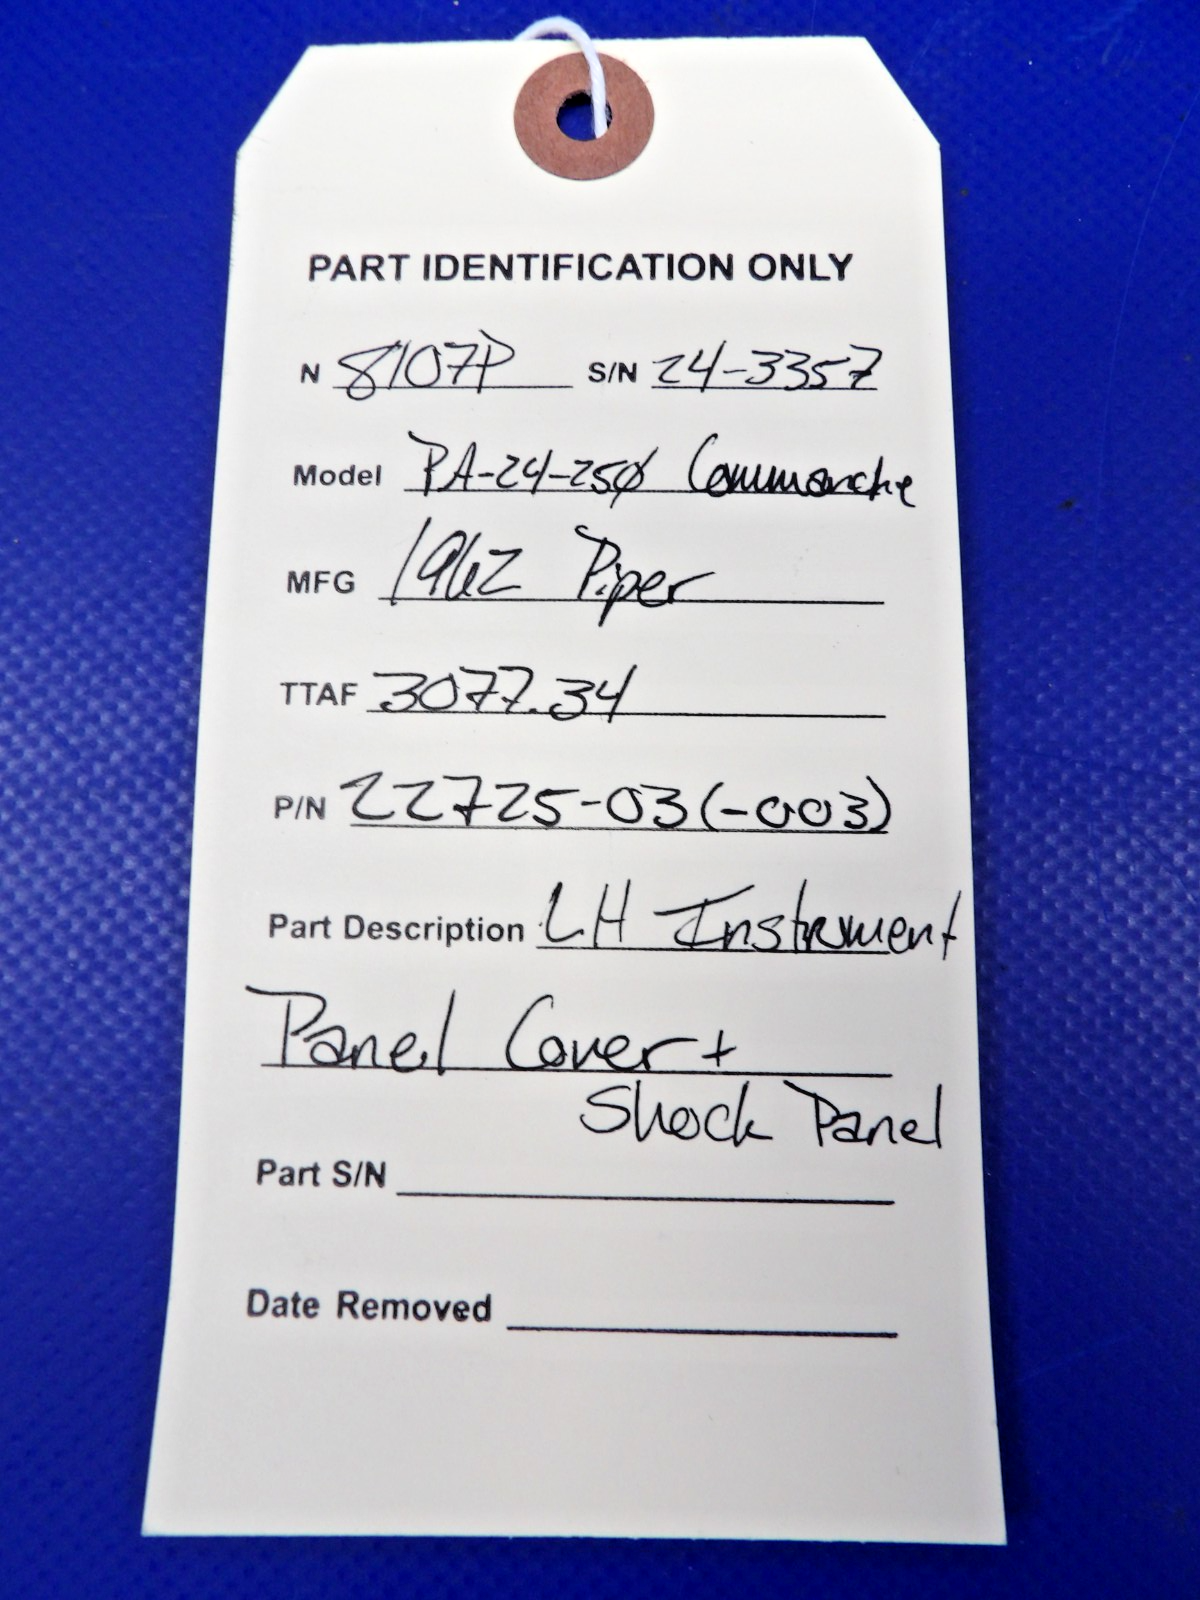 PART IDENTIFICATION ONLY
N 8107P S/N 24-3357
Model PA-24-250 Commanche
MFG 1962 Piper
TTAF 3077.34
P/N 22725-03(-003)
Part Description LH Instrument
Panel Cover +
Shock Panel
Part S/N
Date Removed